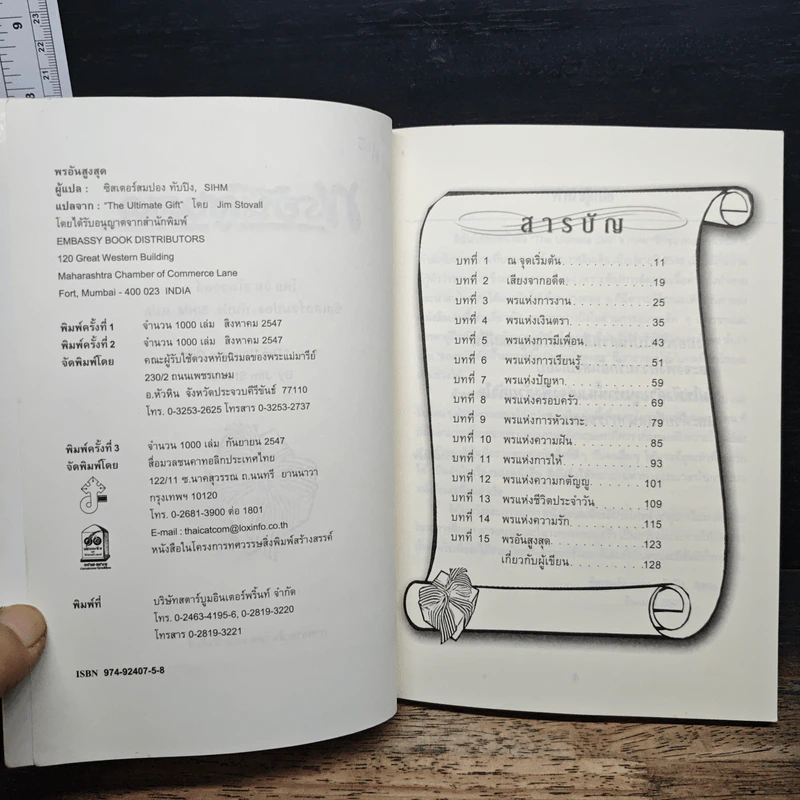 พรอันสูงสุด
ผู้แปล : ซิสเตอร์สมปอง ทับปิง, SIHM
แปลจาก : "The Ultimate Gift" โดย Jim Stovall
โดยได้รับอนุญาตจากสำนักพิมพ์
EMBASSY BOOK DISTRIBUTORS
120 Great Western Building
Maharashtra Chamber of Commerce Lane
Fort, Mumbai - 400 023 INDIA
พิมพ์ครั้งที่ 1 จำนวน 1000 เล่ม สิงหาคม 2547
พิมพ์ครั้งที่ 2 จำนวน 1000 เล่ม สิงหาคม 2547
จัดพิมพ์โดย คณะผู้รับใช้ดวงหทัยนิรมลของพระแม่มารีย์
230/2 ถนนเพชรเกษม
อ.หัวหิน จังหวัดประจวบคีรีขันธ์ 77110
โทร. 0-3253-2625 โทรสาร 0-3253-2737
พิมพ์ครั้งที่ 3 จำนวน 1000 เล่ม กันยายน 2547
จัดพิมพ์โดย สื่อมวลชนคาทอลิกประเทศไทย
122/11 ซ.นาคสุวรรณ ถ.นนทรี ยานนาวา
กรุงเทพฯ 10120
โทร. 0-2681-3900 ต่อ 1801
E-mail : thaicatcom@loxinfo.co.th
หนังสือในโครงการทศวรรษสิ่งพิมพ์สร้างสรรค์
พิมพ์ที่ บริษัทสตาร์บูมอินเตอร์พริ้นท์ จำกัด
โทร. 0-2463-4195-6, 0-2819-3220
โทรสาร 0-2819-3221
ISBN 974-92407-5-8
สารบัญ
บทที่ 1 ณ จุดเริ่มต้น 11
บทที่ 2 เสียงจากอดีต 19
บทที่ 3 พรแห่งการงาน 25
บทที่ 4 พรแห่งเงินตรา 35
บทที่ 5 พรแห่งการมีเพื่อน 43
บทที่ 6 พรแห่งการเรียนรู้ 51
บทที่ 7 พรแห่งปัญหา 59
บทที่ 8 พรแห่งครอบครัว 69
บทที่ 9 พรแห่งการหัวเราะ 79
บทที่ 10 พรแห่งความฝัน 85
บทที่ 11 พรแห่งการให้ 93
บทที่ 12 พรแห่งความกตัญญู 101
บทที่ 13 พรแห่งชีวิตประจำวัน 109
บทที่ 14 พรแห่งความรัก 115
บทที่ 15 พรอันสูงสุด 123
เกี่ยวกับผู้เขียน 128